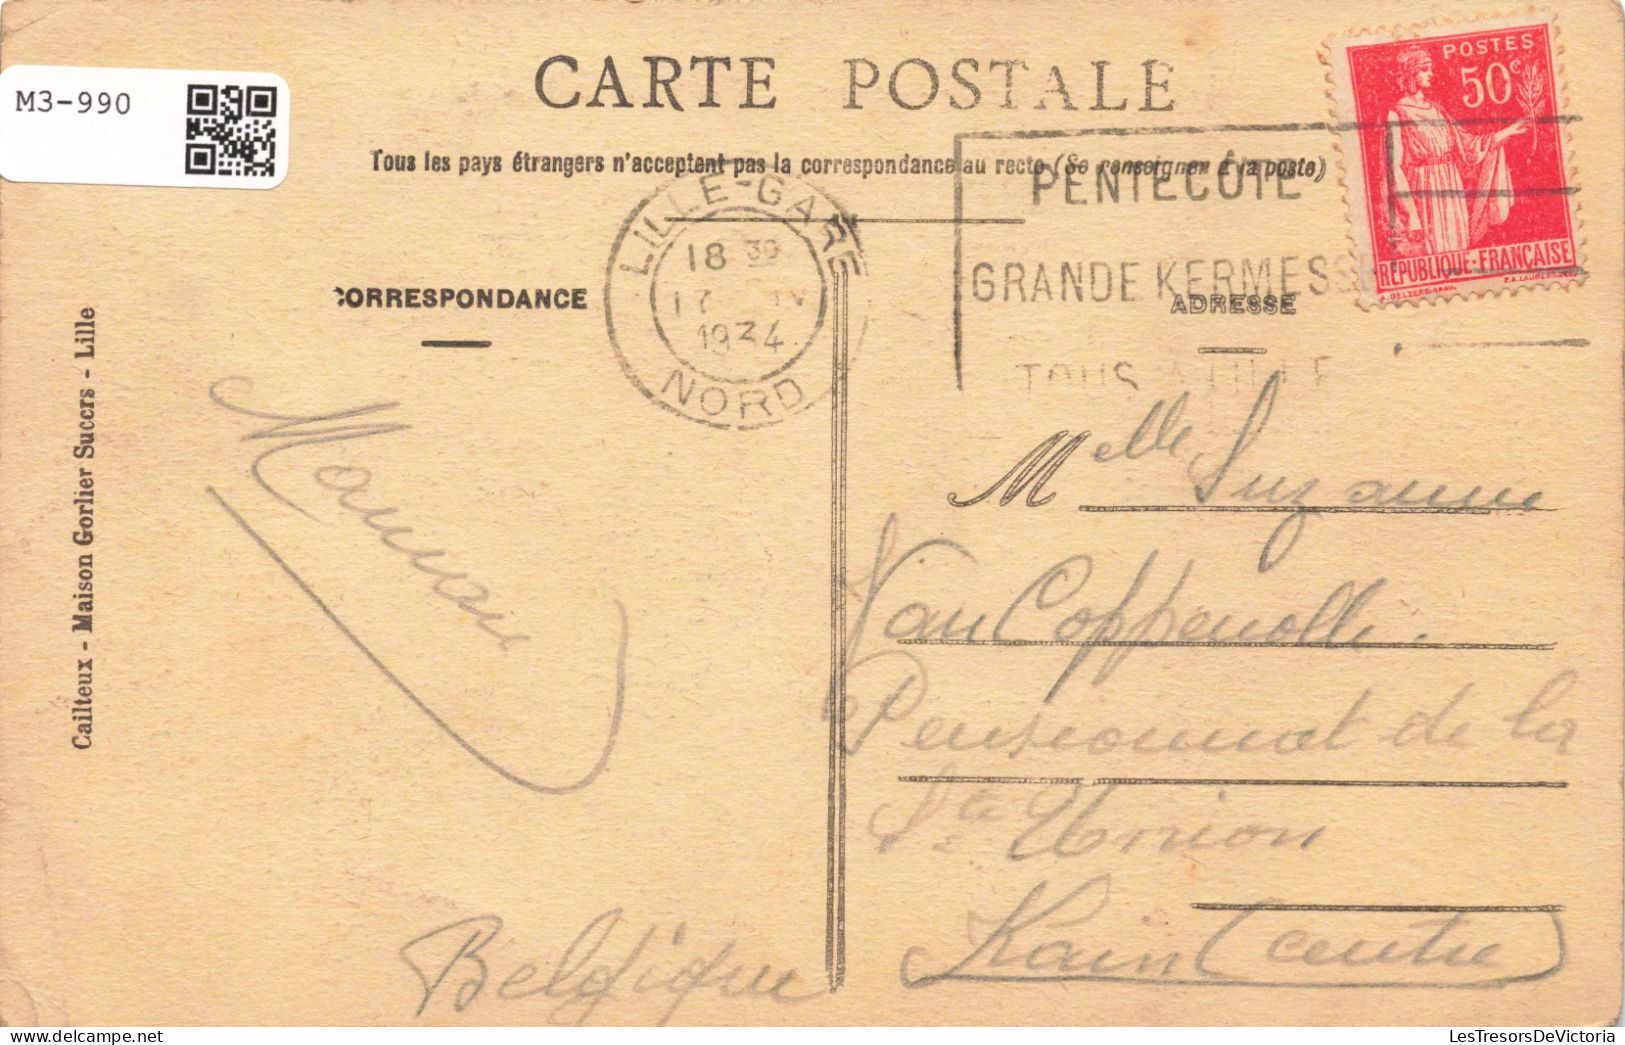 M3-990
CARTE POSTALE
Tous les pays étrangers n'acceptent pas la correspondance au recto (Se renseigner à la poste)
POSTES
50c
RÉPUBLIQUE·FRANÇAISE
LILLE-GARE
18 30
17 IV
1934
NORD
PENTECÔTE
GRANDE KERMESSE
TOUS A LILLE
CORRESPONDANCE
ADRESSE
Cailteux - Maison Gorlier Succrs - Lille
Maman
Melle Suzanne
Van Coppenolle.
Pensionnat de la
Ste Union
Kain (Centre)
Belgique
LesTresorsDeVictoria